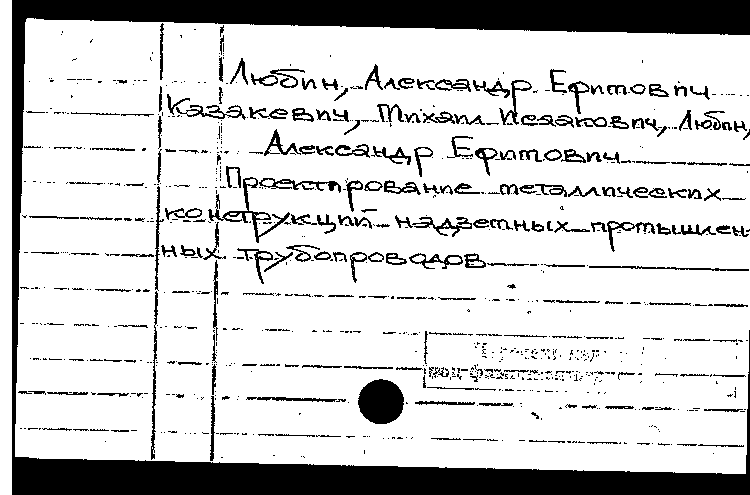 Любин, Александр Ефимович
Казакевич, Михаил Исаакович, Любин,
Александр Ефимович
Проектирование металлических
конструкций надземных промышлен-
ных трубопроводов